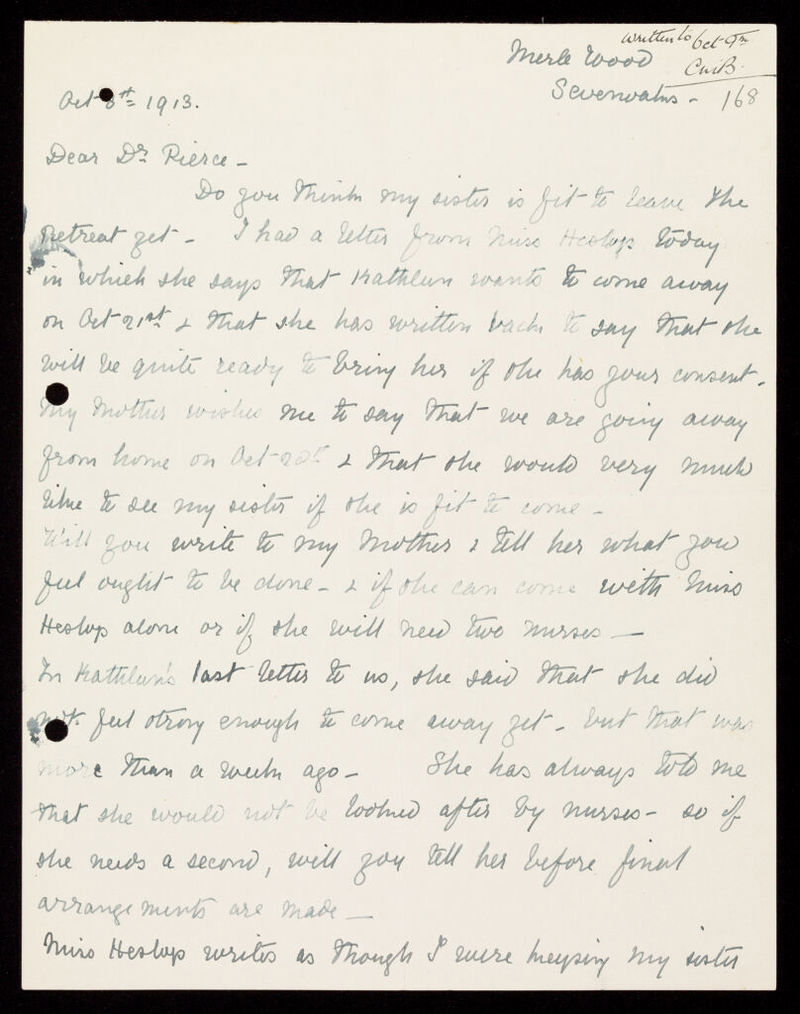 written to Oct 9th
Merle Wood
CWB.
Sevenoaks - 168
Oct 8th 1913.
Dear Dr Pierce -
Do you think my sister is fit to leave the
Retreat yet - I had a letter from Miss Heslop today
in which she says that Kathleen wants to come away
on Oct 21st & that she has written back to say that she
will be quite ready to bring her if she has your consent.
My Mother wishes me to say that we are going away
from home on Oct & that she would very much
like to see my sister if she is fit to come -
Will you write to my Mother & tell her what you
feel ought to be done - & if she can come with Miss
Heslop alone or if she will need two nurses -
In Kathleen's last letter to us, she said that she did
not feel strong enough to come away yet - but that was
more than a week ago - She has always told me
that she would not be looked after by nurses - so if
she needs a second, will you tell her before final
arrangements are made -
Miss Heslop writes as though I were keeping my sister